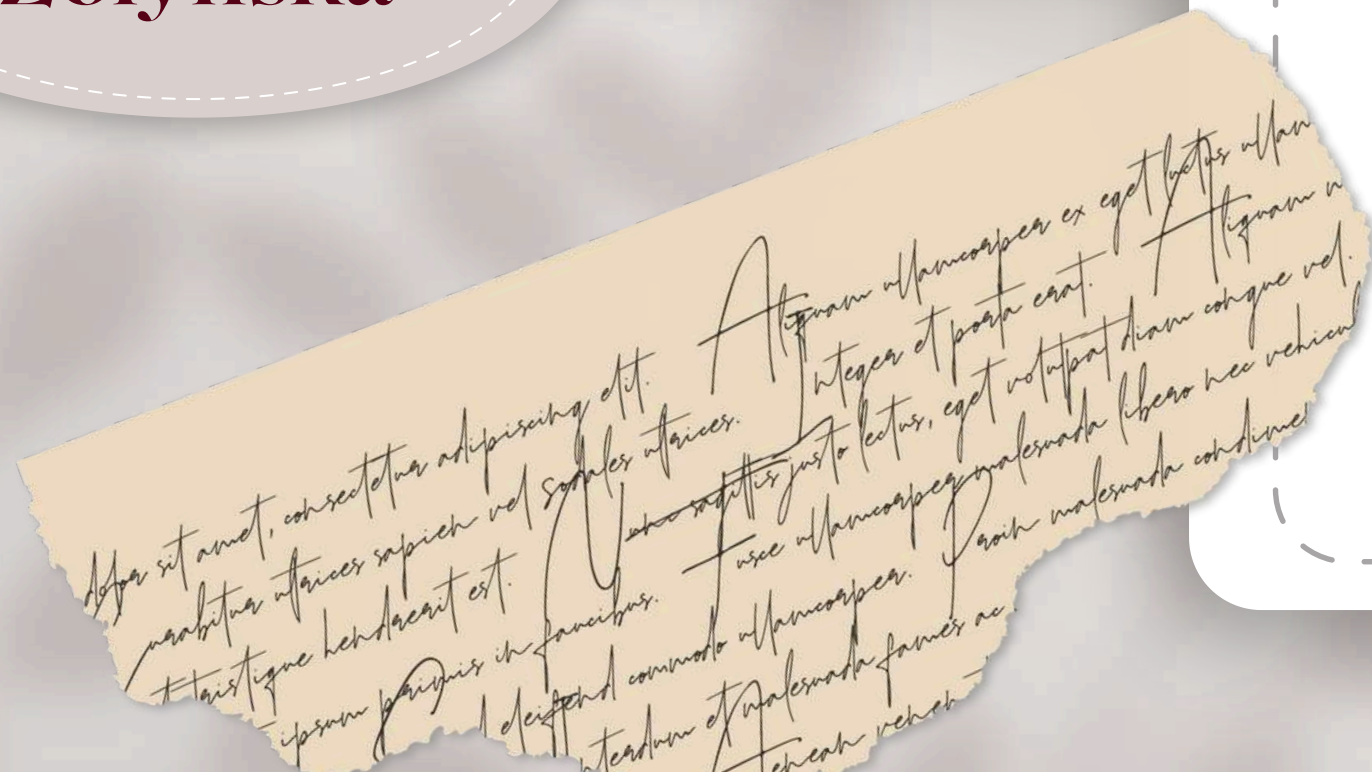 dolor sit amet, consectetur adipiscing elit. Aliquam ullamcorper ex eget luctus ullam
urabitur ultrices sapien vel sodales ultrices. Integer et porta erat. Aliquam
tristique hendrerit est. Nunc sagittis justo lectus, eget volutpat diam congue vel.
ipsum primis in faucibus. Fusce ullamcorper malesuada libero nec vehicul
eleifend commodo ullamcorper. Proin malesuada condime
nterdum et malesuada fames ac